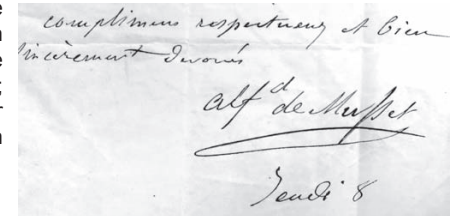 complimens respectueux et bien
sincèrement dévoués
Alfd de Musset
Jeudi 8